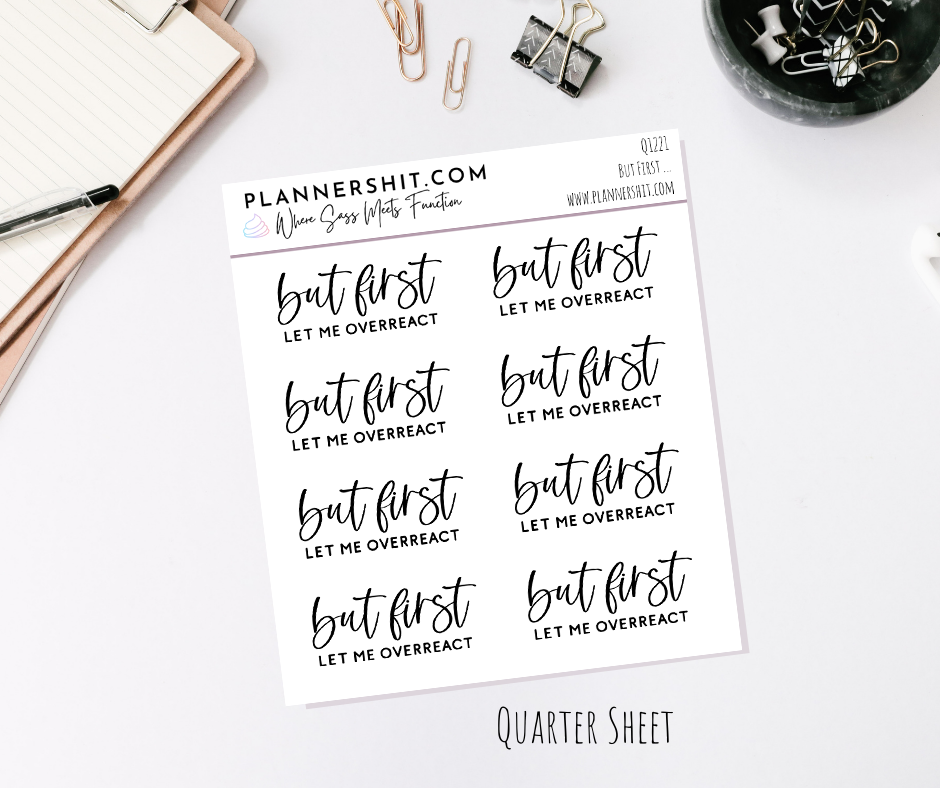 PLANNERSHIT.COM
Where Sass Meets Function
Q1221
BUT FIRST ...
WWW.PLANNERSHIT.COM
but first
LET ME OVERREACT
but first
LET ME OVERREACT
but first
LET ME OVERREACT
but first
LET ME OVERREACT
but first
LET ME OVERREACT
but first
LET ME OVERREACT
but first
LET ME OVERREACT
but first
LET ME OVERREACT
QUARTER SHEET